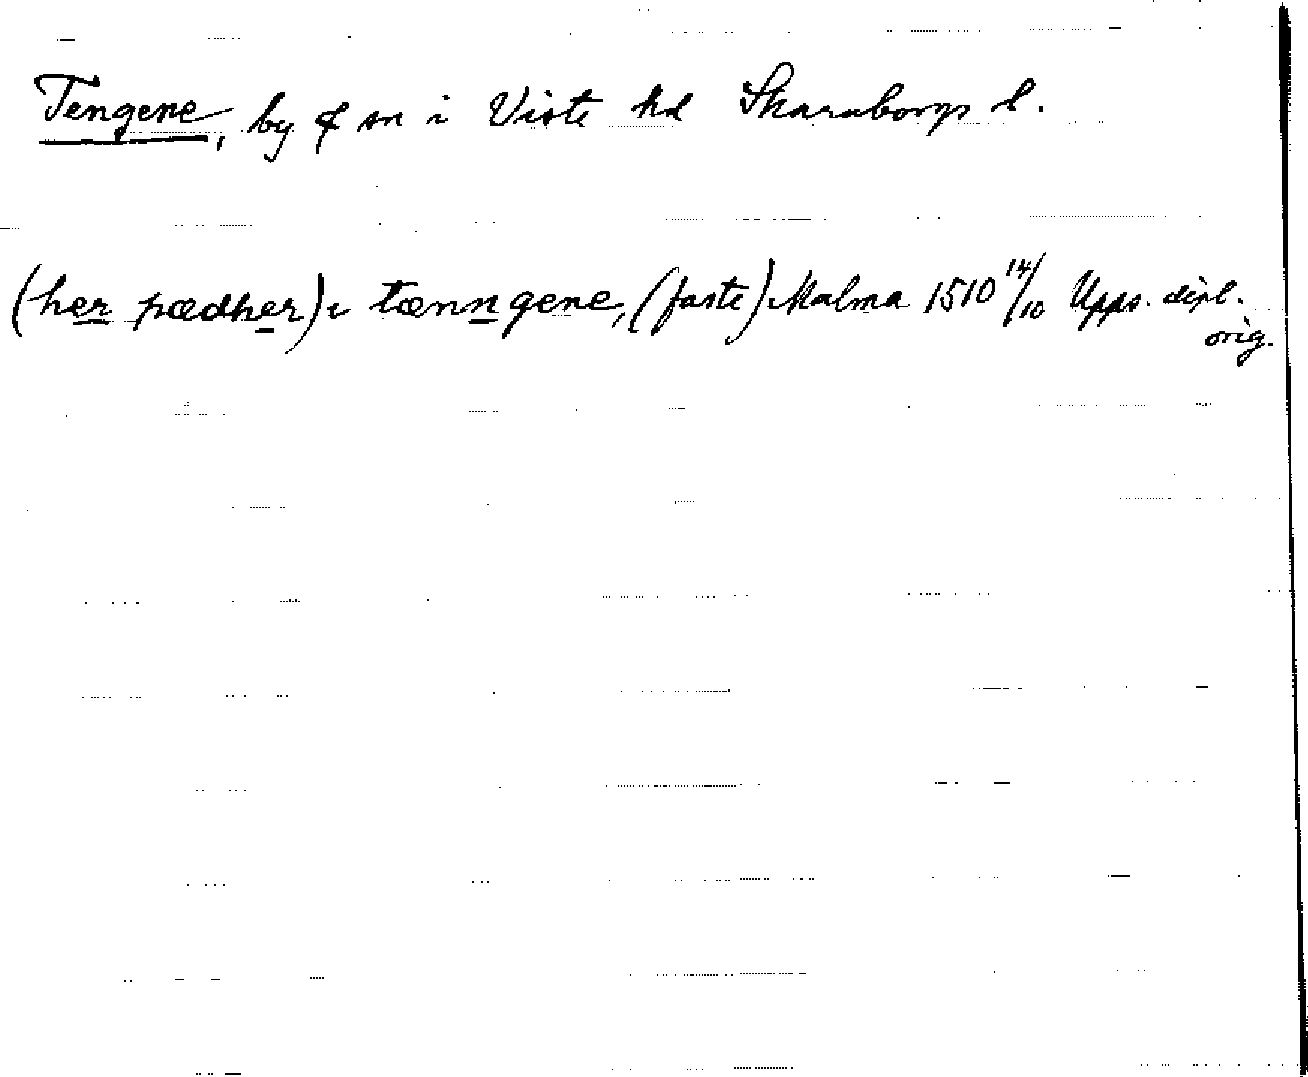 Tengene, by & sn i Viste hd Skaraborgs l.
(her pædher) i tænngene, (faste) Malma 1510 14/10 Upps. dipl.
orig.